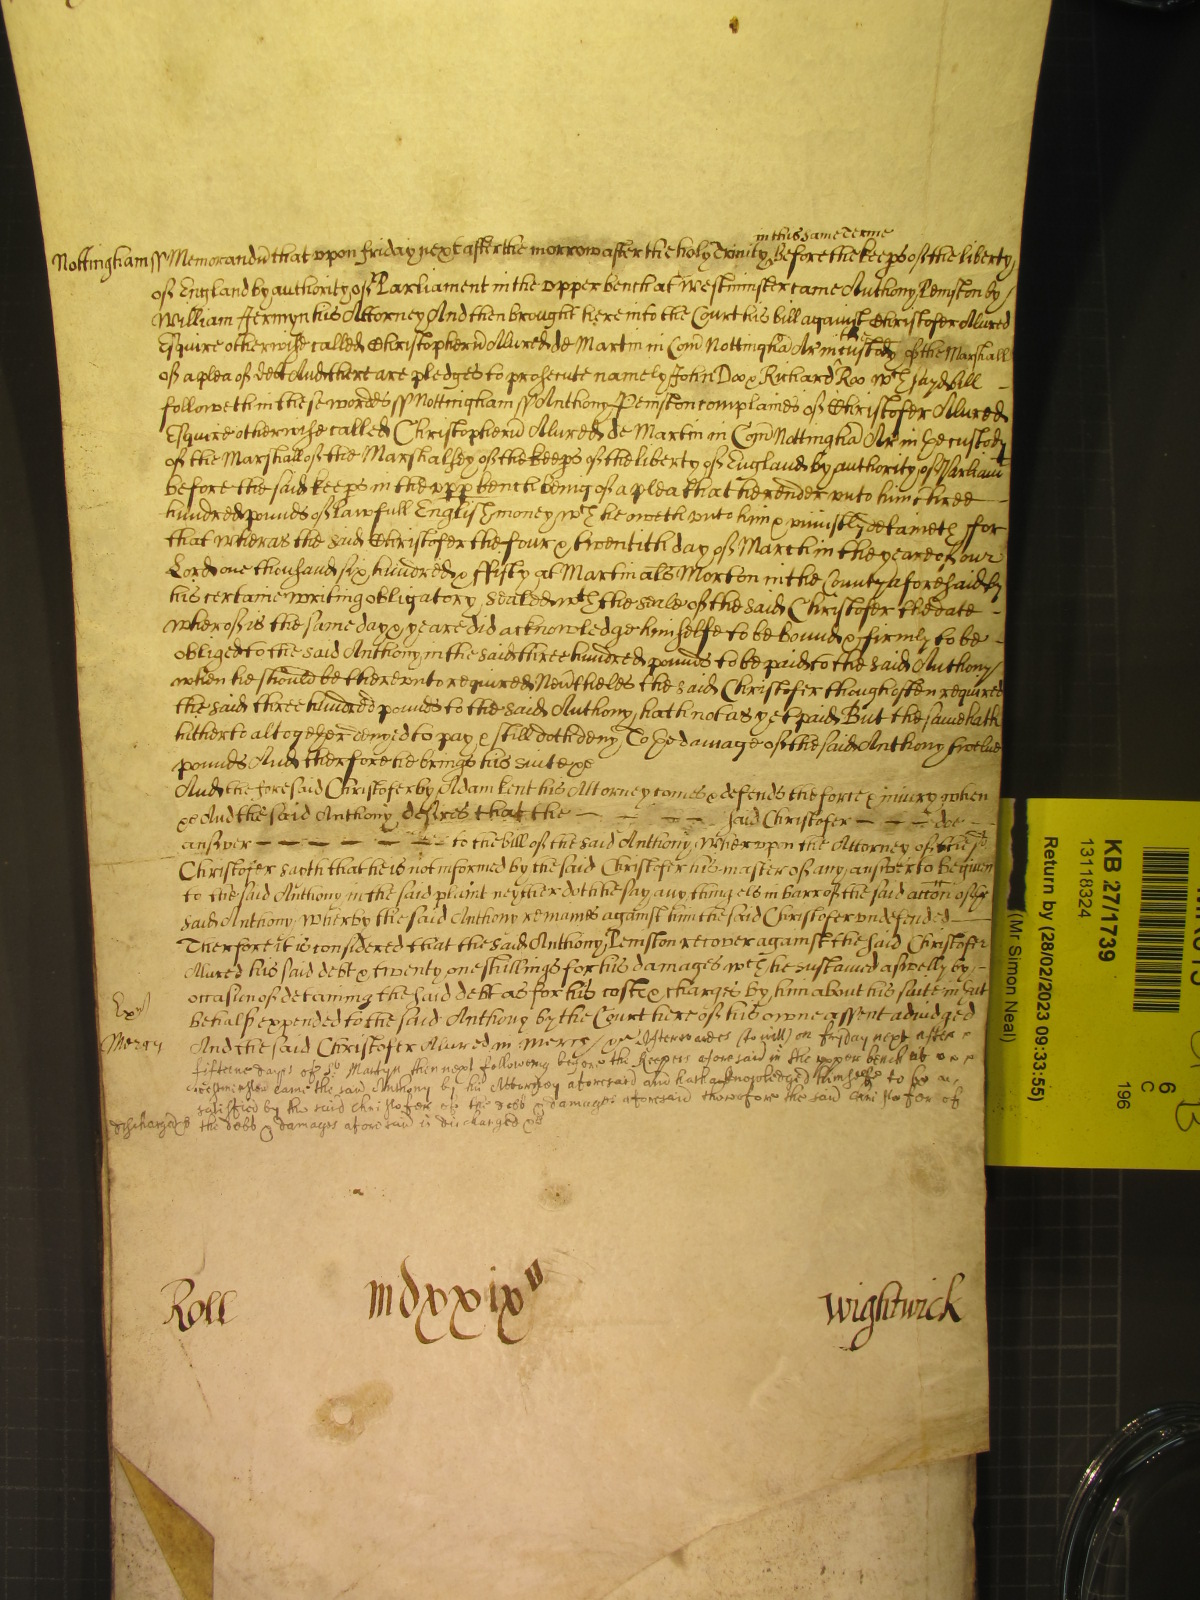 in this same Terme
Nottingham ss Memorandū that vpon friday next after the morrow after the holy Trinity Before the keeps of the liberty
of England by authority of Parliament in the vpper bench at Westminster came Anthony Peniston by
William ffermyn his Attorney And then brought here into the Court his bill against Christofer Alured
Esquire otherwise called Christopherū Alured de Martin in Com̄ Nottinghā Ar in the custody of the Marshall
of a plea of debt And there are pledges to prosecute namely John Doo & Richard Roo wch sayd bill
followeth in these wordes ss Nottingham ss Anthony Peniston complaines of Christofer Alured
Esquire otherwise called Christopherū Alured de Martin in Com̄ Nottinghā Ar in ye custody
of the Marshall of the Marshalsey of the keeps of the liberty of England by authority of Parliamt
before the said keeps in the vpp bench being of a plea that he render vnto him three
hundred pounds of lawfull English money wch he oweth vnto him & vniustly detaineth ffor
that wheras the said Christofer the four & twentith day of March in the yeare of our
Lord one thousand six hundred & ffifty at Martin als Morton in the County aforesaid by
his certaine writing obligatory sealed wth the seale of the said Christofer the date
wherof is the same day & yeare did acknowledge himselfe to be bound & firmly to be
obliged to the said Anthony in the said three hundred pounds to be paid to the said Anthony
when he should be therevnto required Neūtheles the said Christofer though often required
the said three hundred pounds to the said Anthony hath not as yet paid But the same hath
hitherto altogether denyed to pay & still doth deny To ye damage of the said Anthony twelve
pounds And therfore he brings his suite &c
And the foresaid Christofer by Adam Kent his Attorney comes & defends the force & iniury when
&c And the said Anthony desires that the — — — — said Christofer — — — doe
answer — — — — — — to the bill of the said Anthony Wherupon the Attorney of the sd
Christofer saith that he is not informed by the said Christofer his master of any answer to be given
to the said Anthony in the said plaint neyther doth he say any thing els in barr of the said accōn of ye
said Anthony Wherby the said Anthony remaines against him the said Christofer vndefended
Therfore it is considered that the said Anthony Peniston recover against the said Christofer
Alured his said debt & twenty one shillings for his damages wch he sustained aswell by
occasion of detaining the said debt as for his costes & charges by him about his suite in yt
behalf expended to the said Anthony by the Court here of his owne assent adiudged
And the said Christofer Alured in mercy &c Afterwardes (to witt) on friday next after
fifteene dayes of St Martyn then next following before the Keepers aforesaid in the vpper bench at
Westminster came the said Anthony by his Attorney aforesaid and hath acknowledged himselfe to be
satisfied by the said Christofer of the debt & damages aforesaid therefore the said Christofer of
the debt & damages aforesaid is discharged &c
Exr
Mercy
discharged
Roll mdxxixu Wightwick
KB 27/1739
13118324
Return by (28/02/2023 09:33:55)
(Mr Simon Neal)
6
C
196